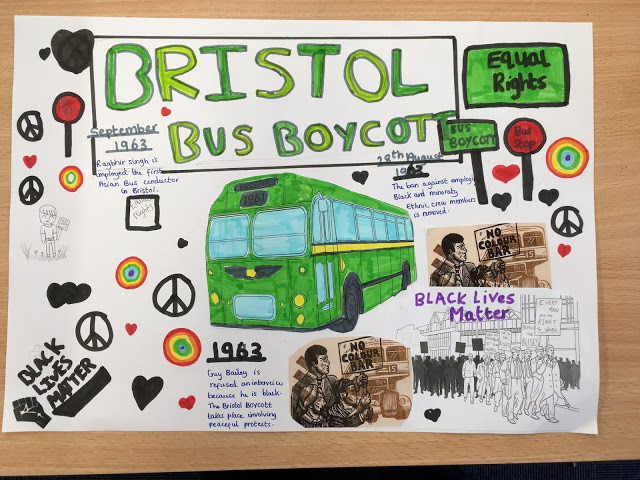 BRISTOL
BUS BOYCOTT
EQUAL
Rights
September
1963
Ragbhir singh is
employed the first
Asian Bus conductor
in Bristol.
28th August
1963
The ban against employing
Black and minoraty
Ethnic crew members
is removed.
BUS
BOYCOTT
Bus
Stop
EQUAL
rights
BRISTOL
1961
NO
COLOUR
BAR
15
BLACK Lives
Matter
EVERY
MAN
RIGHT
1963
Guy Bailey is
refused an interview
because he is black.
The Bristol Boycott
takes place involving
peaceful protests.
NO
COLOUR
BAR
15
BLACK
LIVES
MATTER